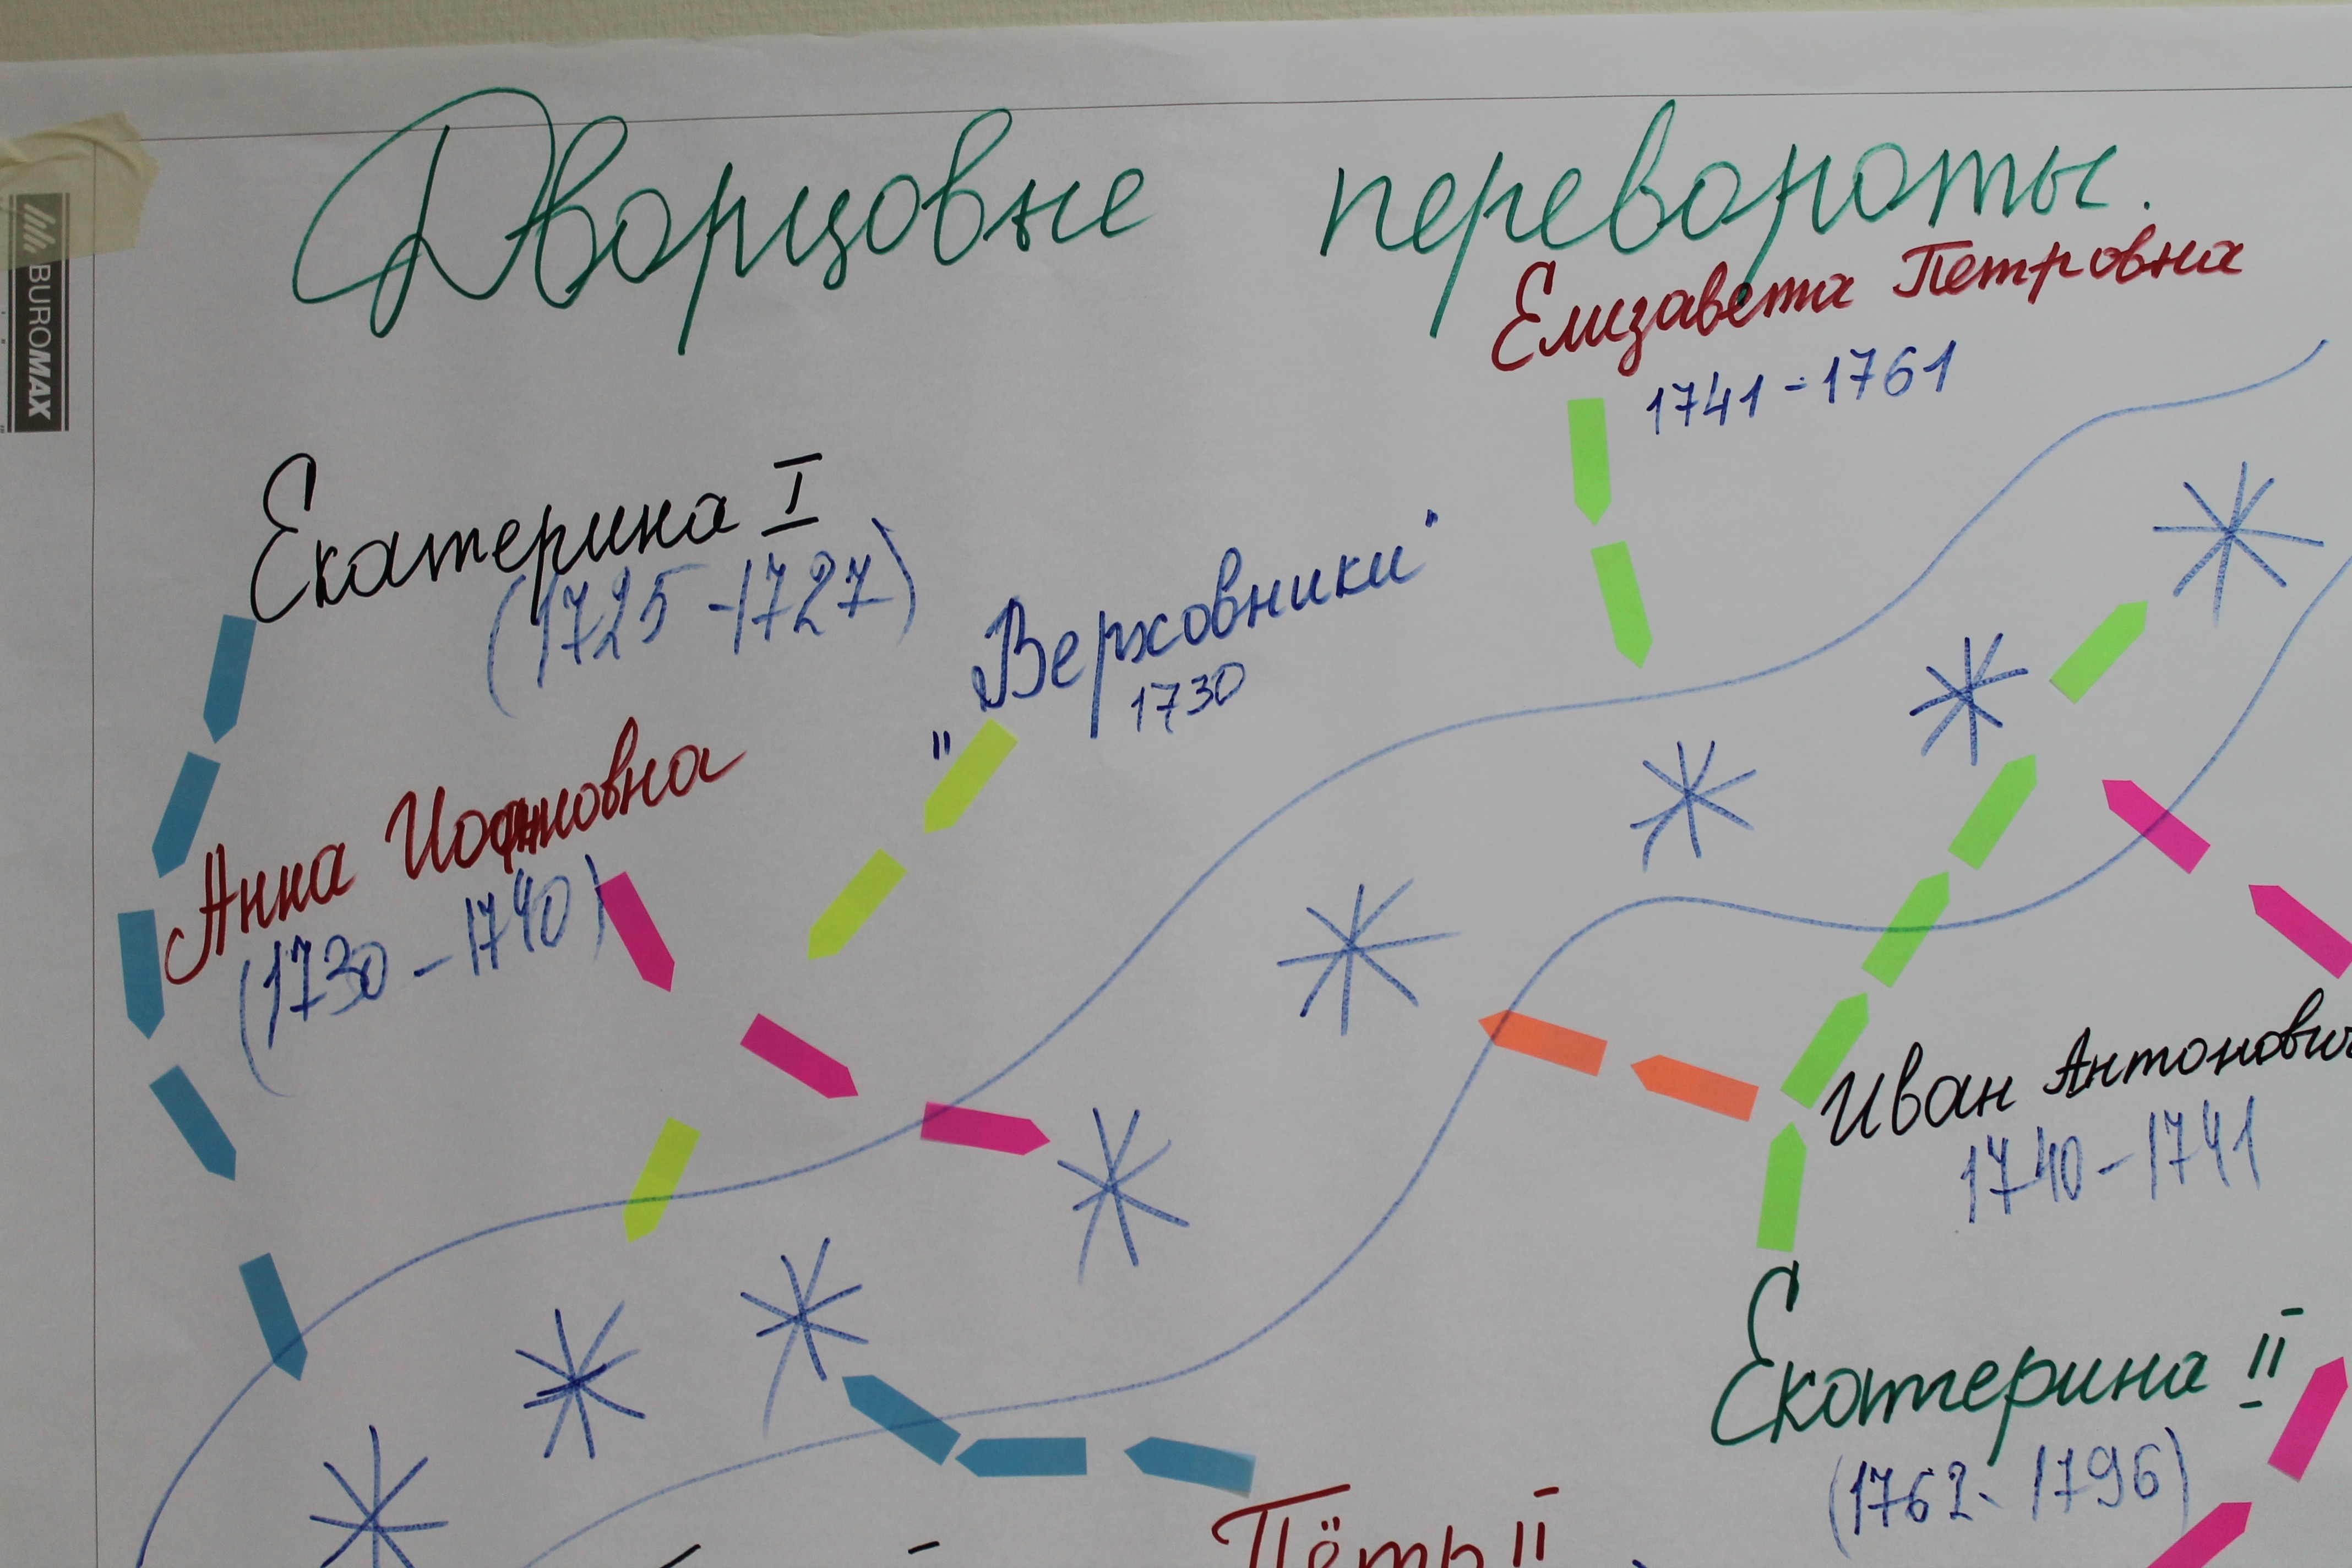 Дворцовые перевороты.
Елизавета Петровна
1741-1761
Екатерина I
(1725-1727)
"Верховники"
1730
Анна Иоанновна
(1730-1740)
Иван Антонович
1740-1741
Екатерина II
(1762-1796)
Пётр II
BUROMAX